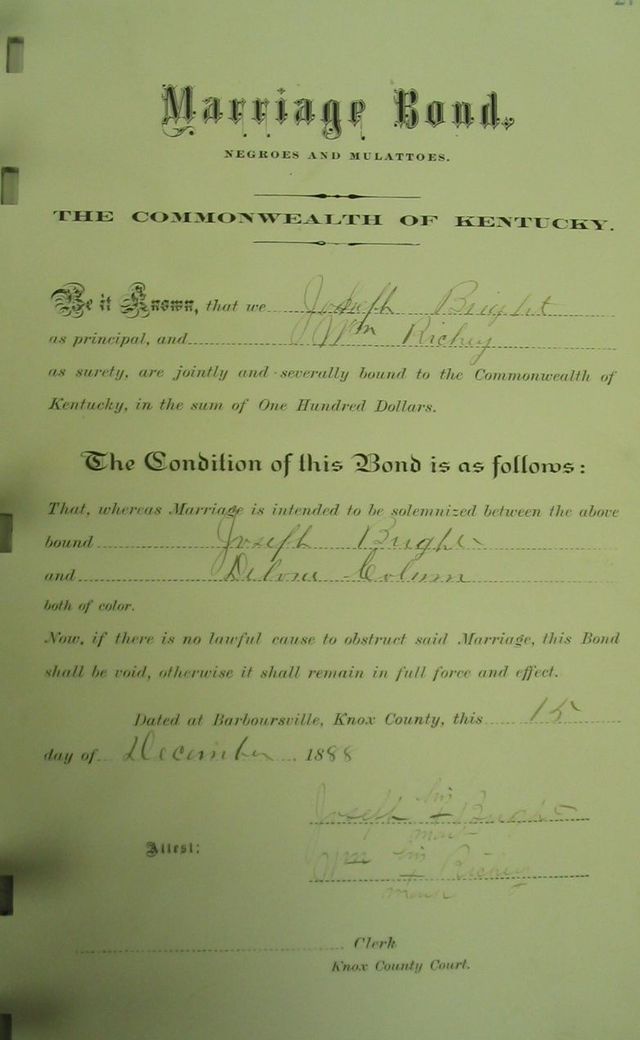 Marriage Bond.
NEGROES AND MULATTOES.
THE COMMONWEALTH OF KENTUCKY.
Be it Known, that we Joseph Bright
as principal, and Wm Richey
as surety, are jointly and severally bound to the Commonwealth of
Kentucky, in the sum of One Hundred Dollars.
The Condition of this Bond is as follows:
That, whereas Marriage is intended to be solemnized between the above
bound Joseph Bright
and
both of color.
Now, if there is no lawful cause to obstruct said Marriage, this Bond
shall be void, otherwise it shall remain in full force and effect.
Dated at Barboursville, Knox County, this 15
day of December, 1888
Joseph his + Bright
mark
Attest:
Wm his + Richey
mark
Clerk
Knox County Court.